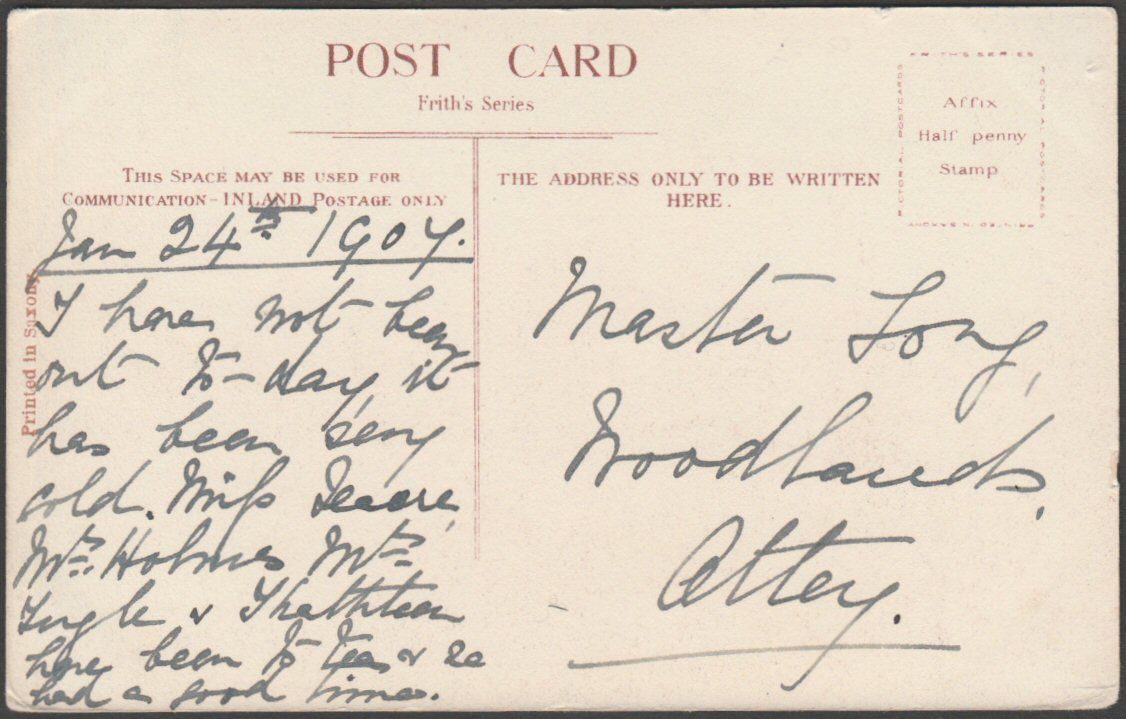 POST CARD
Frith's Series
THIS SPACE MAY BE USED FOR
COMMUNICATION - INLAND POSTAGE ONLY
THE ADDRESS ONLY TO BE WRITTEN
HERE.
FRITH'S SERIES
PICTORIAL POSTCARDS
Affix
Half penny
Stamp
Printed in Saxony
Jan 24th 1907.
I have not been
out to-day it
has been very
cold. Miss
Mrs. Holmes Mrs
Ingle &
have been to Tea &
had a good time.
Master Long,
Woodlands,
Otley.